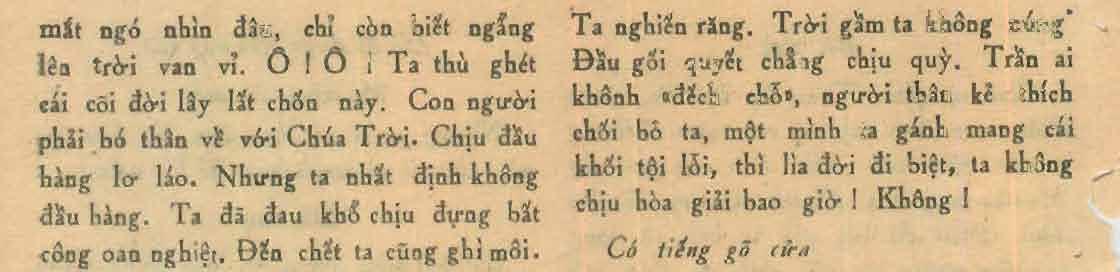 mắt ngó nhìn đâu, chỉ còn biết ngẩng
lên trời van vỉ. Ô ! Ô ! Ta thù ghét
cái cõi đời lây lất chốn này. Con người
phải bó thân về với Chúa Trời. Chịu đầu
hàng lơ láo. Nhưng ta nhất định không
đầu hàng. Ta đã đau khổ chịu đựng bất
công oan nghiệt. Đến chết ta cũng ghì môi.
Ta nghiến răng. Trời gầm ta không cúng
Đầu gối quyết chẳng chịu quỳ. Trần ai
khônh «đếch chỗ», người thân kẻ thích
chối bỏ ta, một mình ta gánh mang cái
khối tội lỗi, thì lìa đời đi biệt, ta không
chịu hòa giải bao giờ ! Không !
Có tiếng gõ cửa